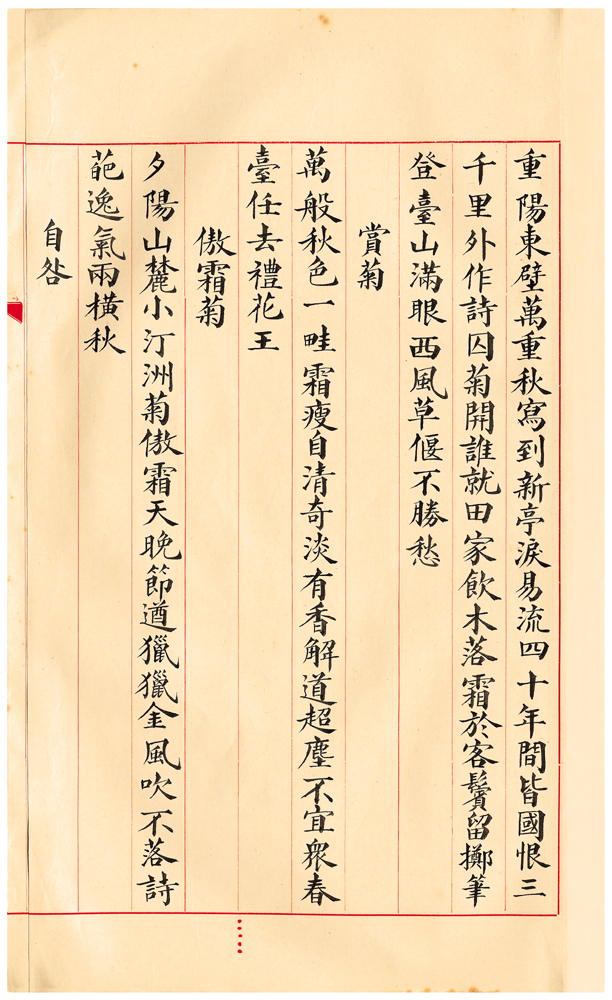 重陽東壁萬重秋寫到新亭淚易流四十年間皆國恨三
千里外作詩囚菊開誰就田家飲木落霜於客鬢留擲筆
登臺山滿眼西風草偃不勝愁
賞菊
萬般秋色一畦霜瘦自清奇淡有香解道超塵不宜眾春
臺任去禮花王
傲霜菊
夕陽山麓小汀洲菊傲霜天晚節遒獵獵金風吹不落詩
葩逸氣兩橫秋
自咎